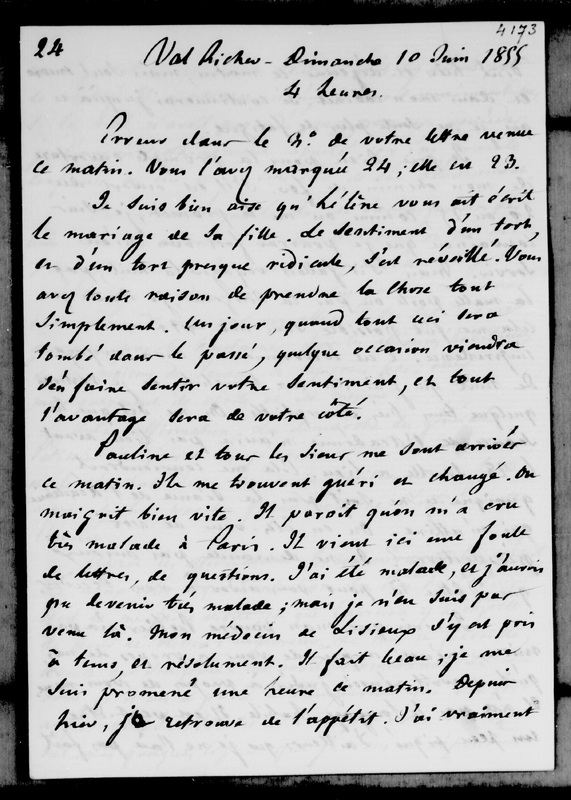 4173
24
Val Richer - Dimanche 10 Juin 1855
4 heures.
Erreur dans le N°. de votre lettre venue
ce matin. Vous l'avez marquée 24 ; elle est 23.
Je suis bien aise qu'hélène vous ait écrit
le mariage de sa fille. Le sentiment d'un tort,
et d'un tort presque ridicule, s'est réveillé. Vous
avez toute raison de prendre la chose tout
simplement. Un jour, quand tout ceci sera
tombé dans le passé, quelque occasion viendra
d'en faire sentir votre sentiment, et tout
l'avantage sera de votre côté.
Pauline et tous les siens me sont arrivés
ce matin. Ils me trouvent guéri et changé. On
maigrit bien vite. Il paroit qu'on m'a cru
très malade à Paris. Il vient ici une foule
de lettres, de questions. J'ai été malade, et j'aurois
pu devenir très malade ; mais je n'en suis pas
venu là. Mon médecin de Lisieux s'y est pris
à tems, et résolument. Il fait beau ; je me
suis promené une heure ce matin. Depuis
hier, je retrouve de l'appétit. J'ai vraiment